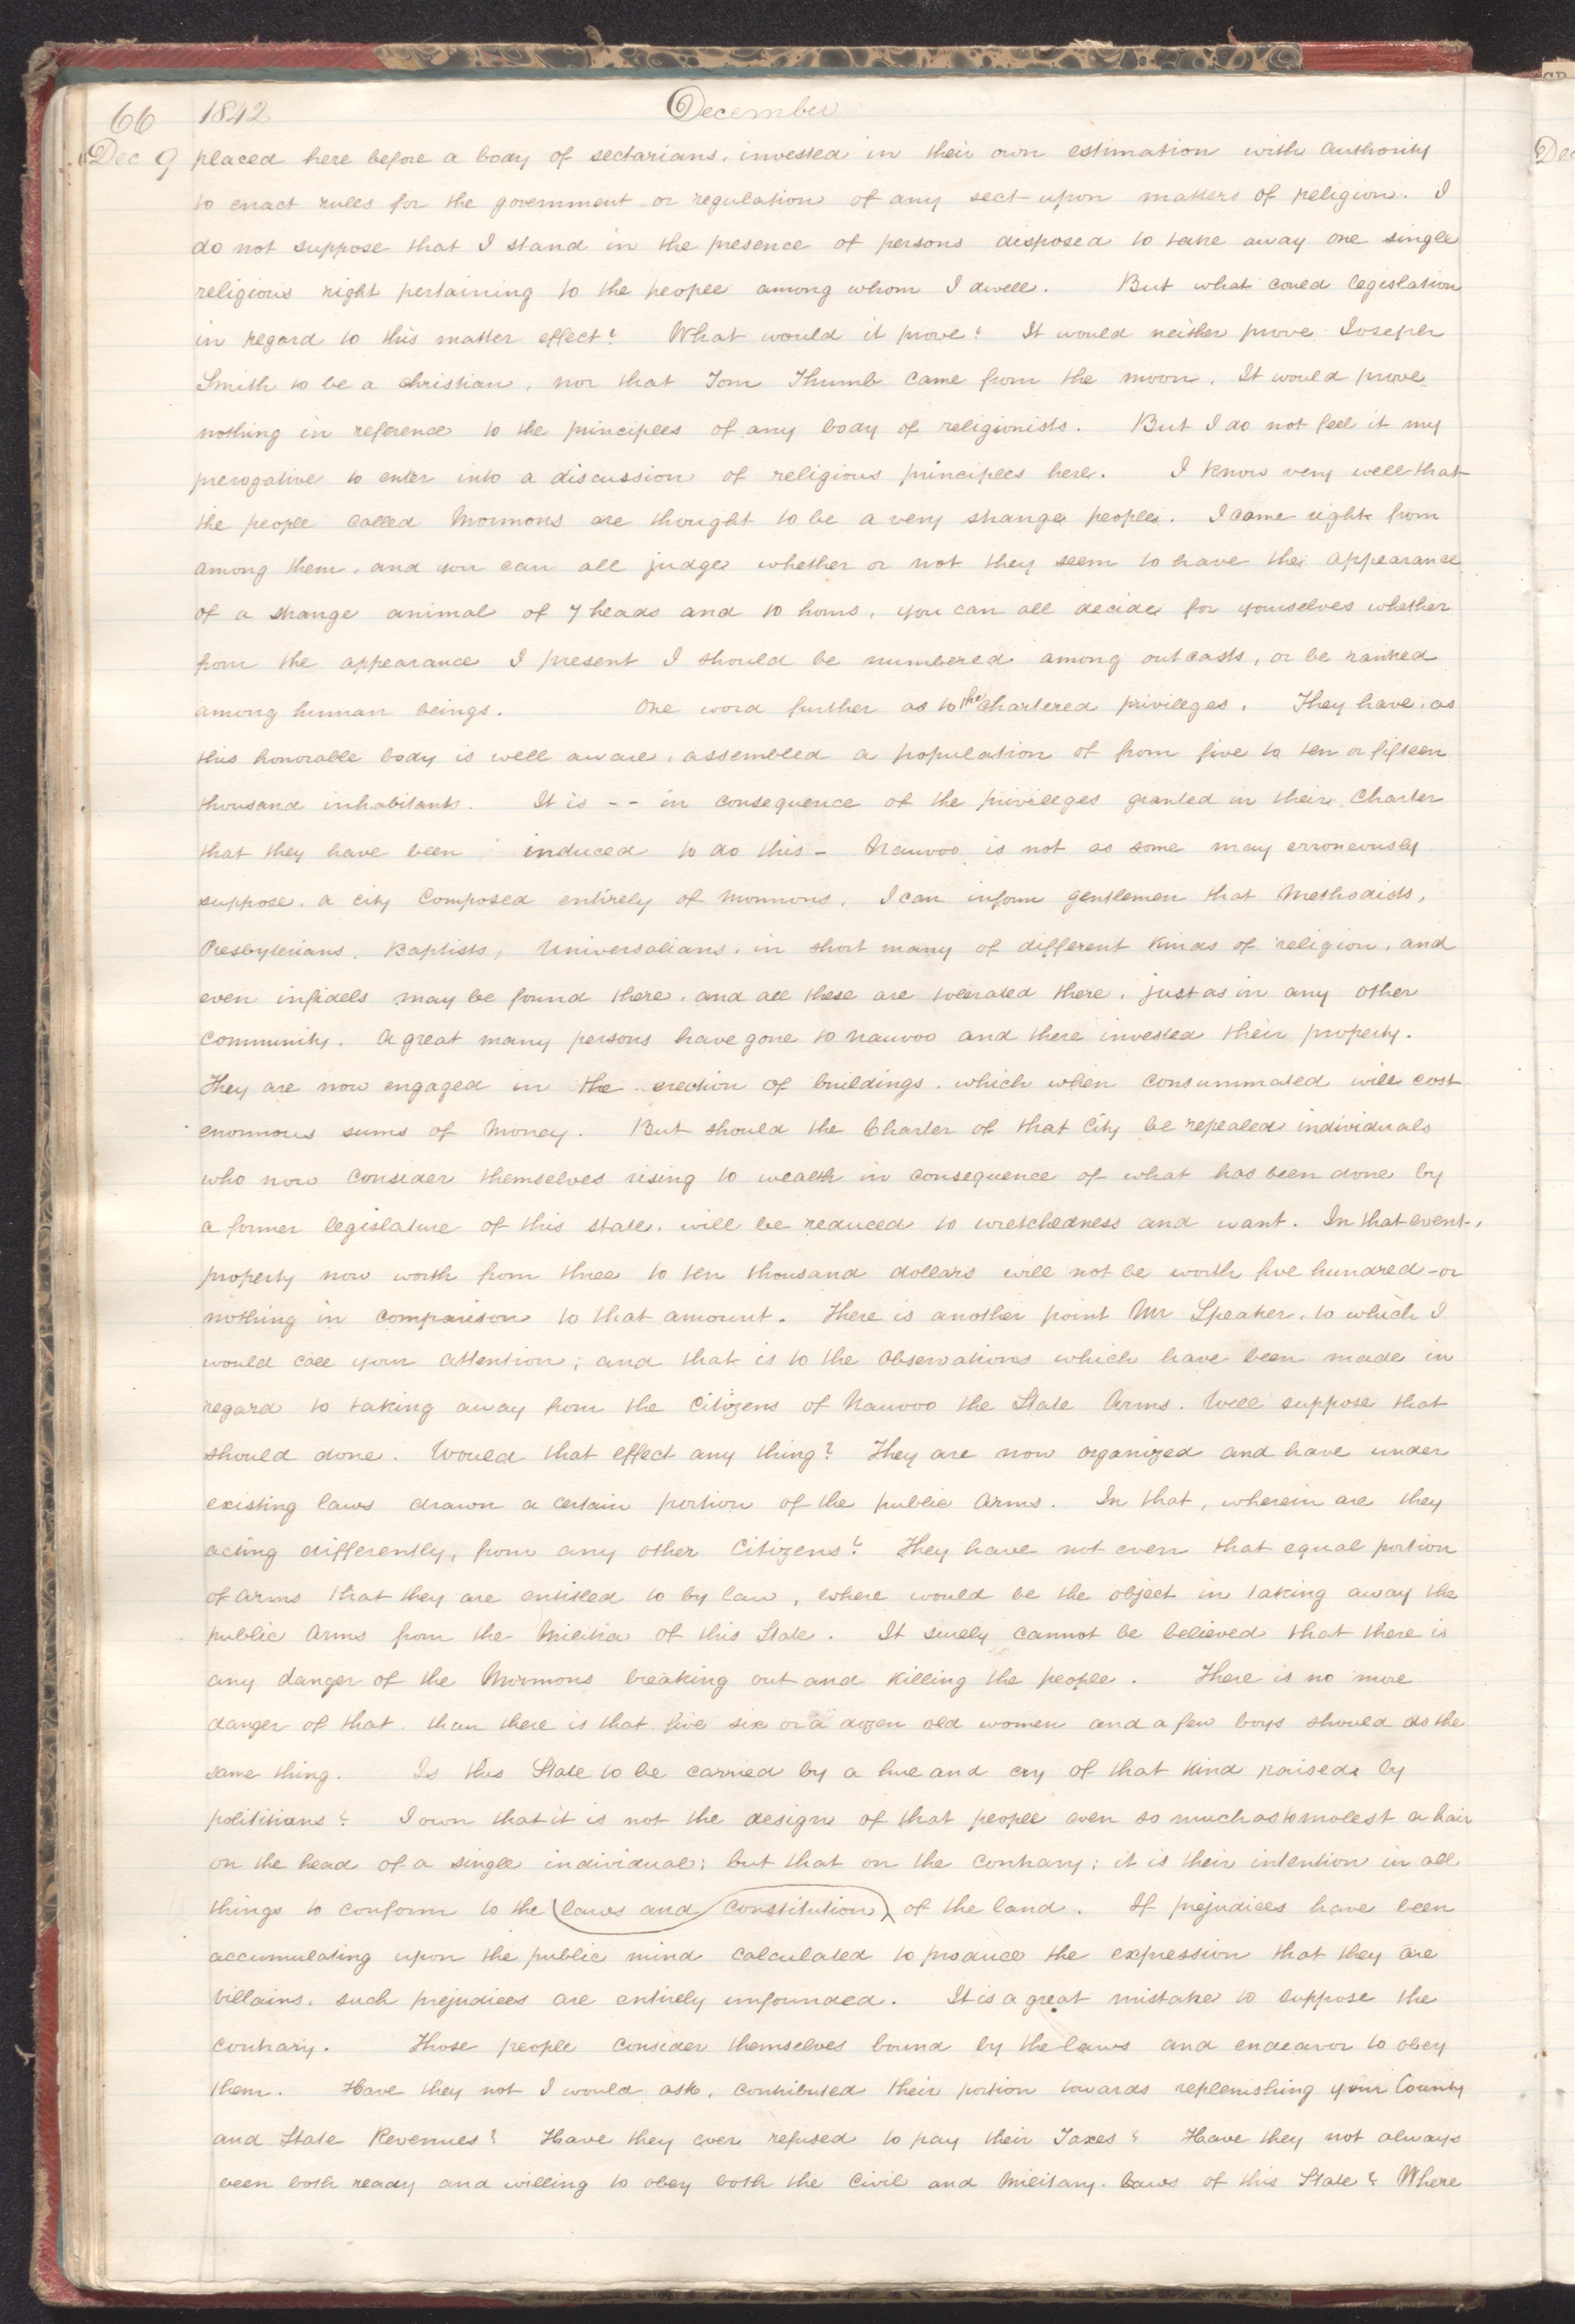 66 1842 December
Dec 9 placed here before a body of sectarians, invested in their own estimation with authority
to enact rules for the government or regulation of any sect upon matters of religion. I
do not suppose that I stand in the presence of persons disposed to take away one single
religious right pertaining to the people among whom I dwell. But what could legislation
in regard to this matter effect? What would it prove? It would neither prove Joseph
Smith to be a christian, nor that Tom Thumb came from the moon. It would prove
nothing in reference to the principles of any body of religionists. But I do not feel it my
prerogative to enter into a discussion of religious principles here. I know very well that
the people called Mormons are thought to be a very strange people. I came right from
among them, and you can all judge whether or not they seem to have the appearance
of a strange animal of 7 heads and 10 horns, you can all decide for yourselves whether
from the appearance I present I should be numbered among outcasts, or be ranked
among human beings. One word further as to the chartered privileges. They have, as
this honorable body is well aware, assembled a population of from five to ten or fifteen
thousand inhabitants. It is -- in consequence of the privileges granted in their Charter
that they have been induced to do this - Nauvoo is not as some may erroneously
suppose, a city composed entirely of Mormons, I can inform gentlemen that Methodists,
Presbyterians, Baptists, Universalians, in short many of different kinds of religion, and
even infidels may be found there, and all these are tolerated there, just as in any other
community. A great many persons have gone to Nauvoo and there invested their property.
They are now engaged in the erection of buildings, which when consummated will cost
enormous sums of money. But should the Charter of that City be repealed individuals
who now consider themselves rising to wealth in consequence of what has been done by
a former legislature of this state, will be reduced to wretchedness and want. In that event,
property now worth from three to ten thousand dollars will not be worth five hundred - or
nothing in comparison to that amount. There is another point Mr Speaker, to which I
would call your attention; and that is to the observations which have been made in
regard to taking away from the Citizens of Nauvoo the State Arms. Well suppose that
should done. Would that effect any thing? They are now organized and have under
existing laws drawn a certain portion of the public arms. In that, wherein are they
acting differently, from any other Citizens? They have not even that equal portion
of arms that they are entitled to by law, where would be the object in taking away the
public arms from the Militia of this State. It surely cannot be believed that there is
any danger of the Mormons breaking out and killing the people. There is no more
danger of that, than there is that five six or a dozen old women and a few boys should do the
same thing. Is this State to be carried by a hue and cry of that kind raised by
polititians? I own that it is not the design of that people even so much as to molest a hair
on the head of a single individual; but that on the contrary; it is their intention in all
things to conform to the (laws and constitution) of the land. If prejudices have been
accumulating upon the public mind calculated to produce the expression that they are
villains, such prejudices are entirely unfounded. It is a great mistake to suppose the
contrary. Those people consider themselves bound by the laws and endeavor to obey
them. Have they not I would ask, contributed their portion towards replenishing your County
and State Revenues? Have they ever refused to pay their Taxes? Have they not always
been both ready and willing to obey both the Civil and Military laws of this State? Where